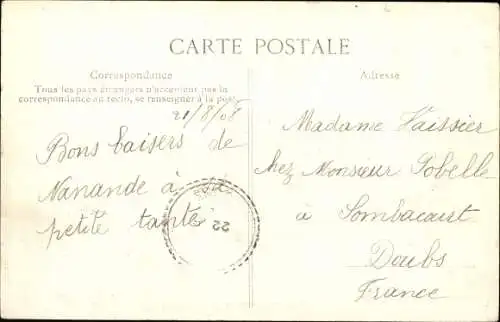 CARTE POSTALE
Correspondance
Tous les pays étrangers n'acceptent pas la
correspondance au recto, se renseigner à la poste
21/8/08
Bons baisers de
Nanande à sa
petite tante
22
Adresse
Madame Vaissier
chez Monsieur Gobelle
à Sombacourt
Doubs
France